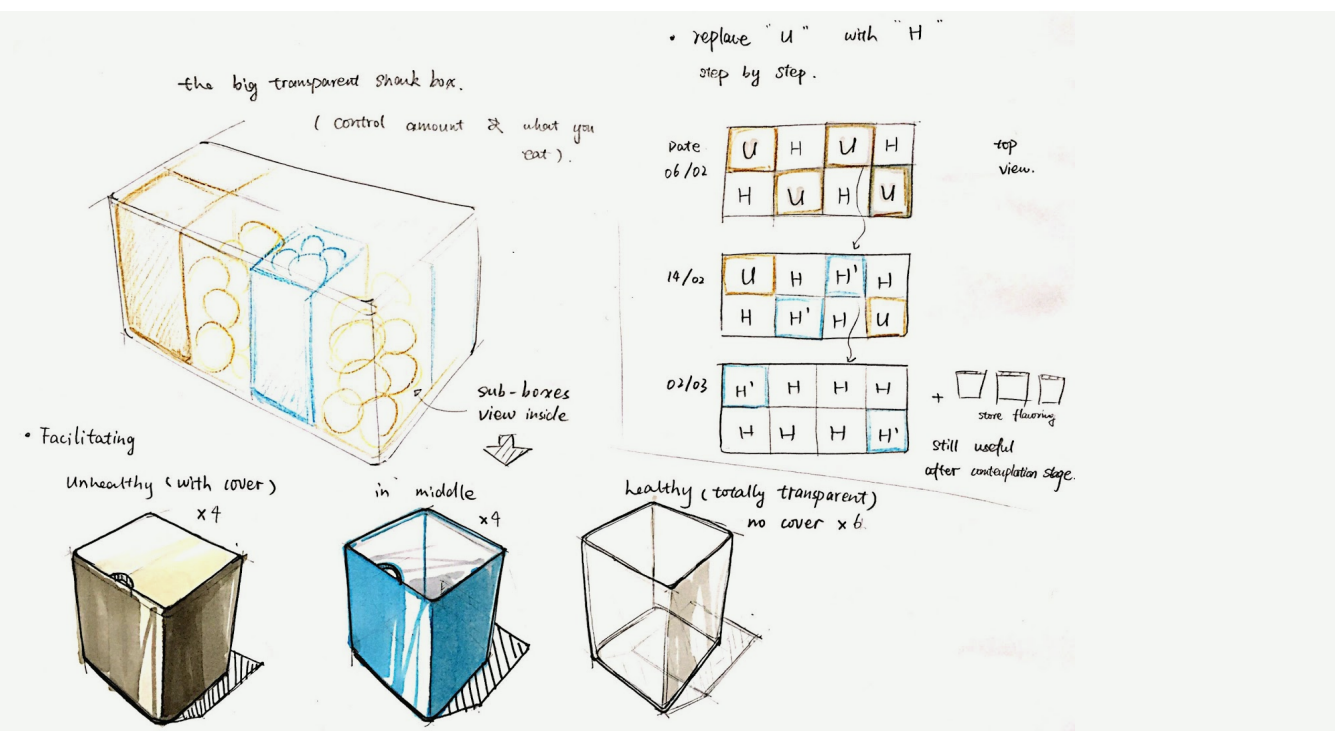 the big transparent snack box.
( control amount & what you
eat ).
sub-boxes
view inside
• Facilitating
Unhealthy (with cover)
x4
in middle
x4
healthy (totally transparent)
no cover x 6.
• replace "U" with "H"
step by step.
Date
06/02
U H U H
H U H U
top
view.
14/02
U H H' H
H H' H U
02/03
H' H H H
H H H H'
+
store flavoring
still useful
after contemplation stage.